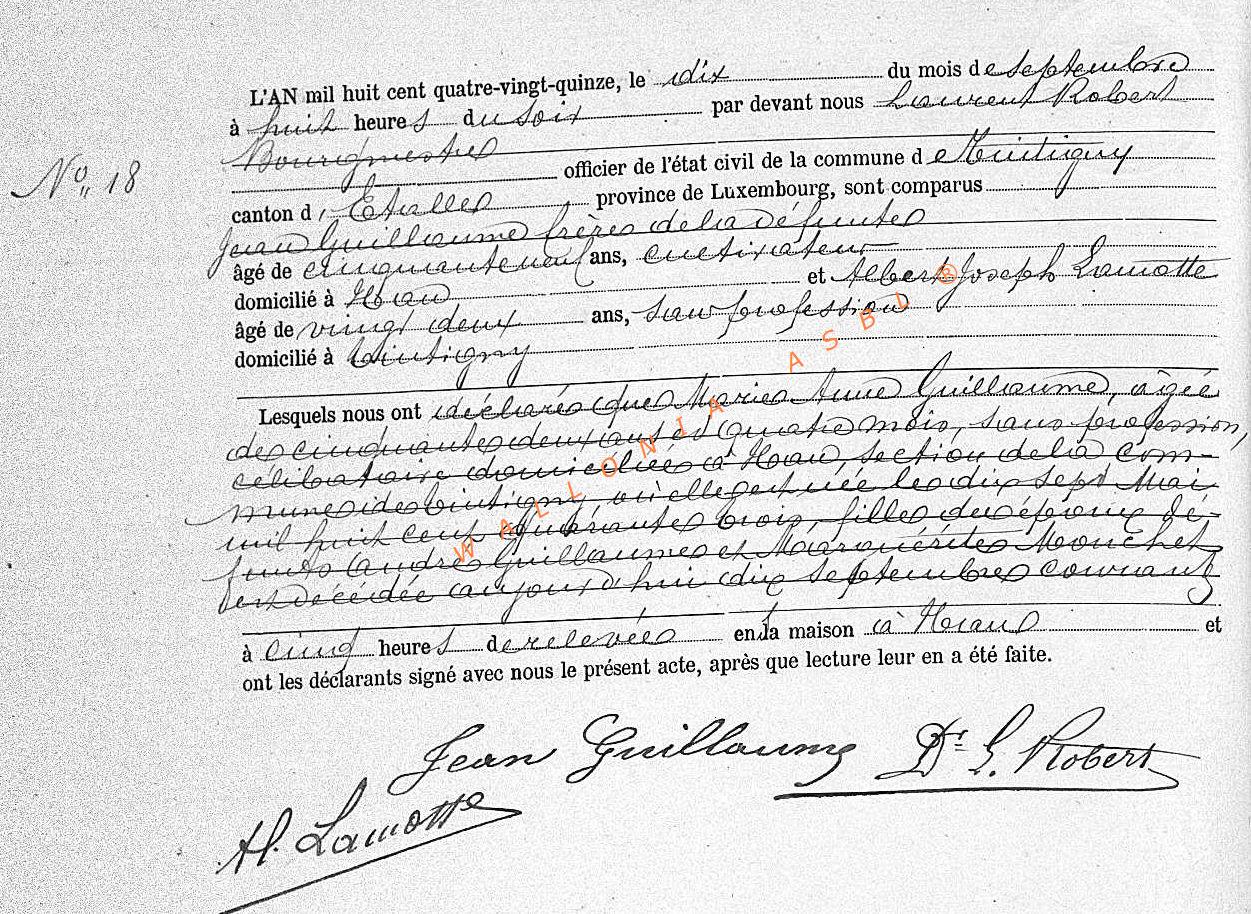 L'AN mil huit cent quatre-vingt-quinze, le dix du mois de septembre
à huit heures du soir par devant nous Laurent Robert
Bourgmestre
No 18
officier de l'état civil de la commune de Tintigny
canton d'Etalle province de Luxembourg, sont comparus
Jean Guillaume frère de la défunte
âgé de cinquante neuf ans, cultivateur
domicilié à Han et Albert Joseph Lamotte
âgé de vingt deux ans, sans profession
domicilié à Tintigny
Lesquels nous ont déclaré que Marie Anne Guillaume, âgée
de cinquante deux ans et quatre mois, sans profession,
célibataire domiciliée à Han, section de la com-
mune de Tintigny, où elle est née le dix sept Mai
mil huit cent quarante trois, fille des époux dé-
funts André Guillaume et Marguérite Mouchet
est décédée aujourd'hui dix septembre courant
à cinq heures de relevée en la maison à Han et
ont les déclarants signé avec nous le présent acte, après que lecture leur en a été faite.
Jean Guillaume Dr L. Robert
Al. Lamotte
WALLONIA ASBL @